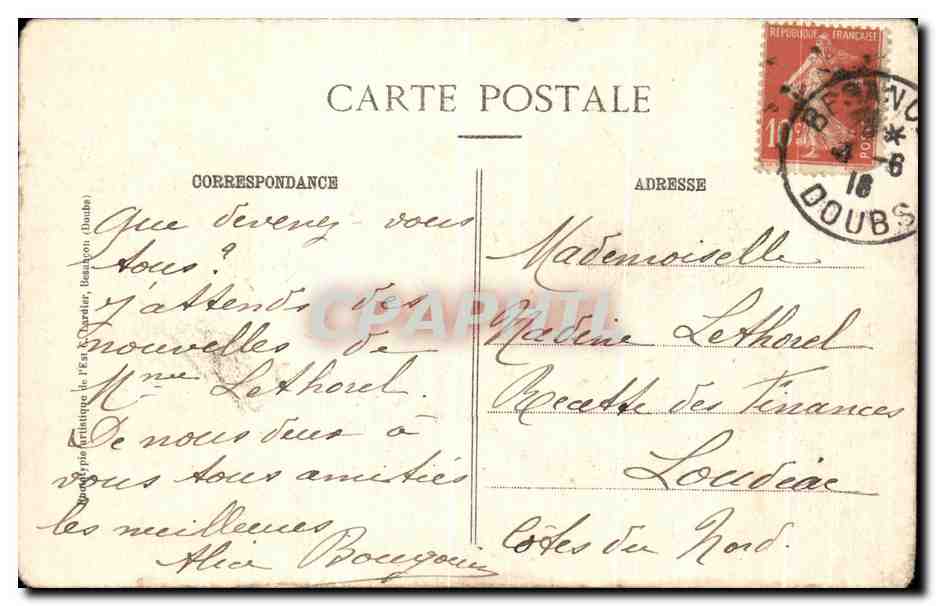 CARTE POSTALE
CORRESPONDANCE
Que devenez-vous
tous ?
J'attends des
nouvelles de
Mme Lethorel.
De nous deux à
vous tous amitiés
les meilleures
Alice
ADRESSE
Mademoiselle
Nadine Lethorel
Recette des Finances
Loudéac
Côtes du Nord.
artistique de l'Est C. Lardier, Besançon (Doubs)
REPUBLIQUE FRANÇAISE
10c
POSTES
BESANÇO
4 -6
18
DOUBS
CPAPHIL